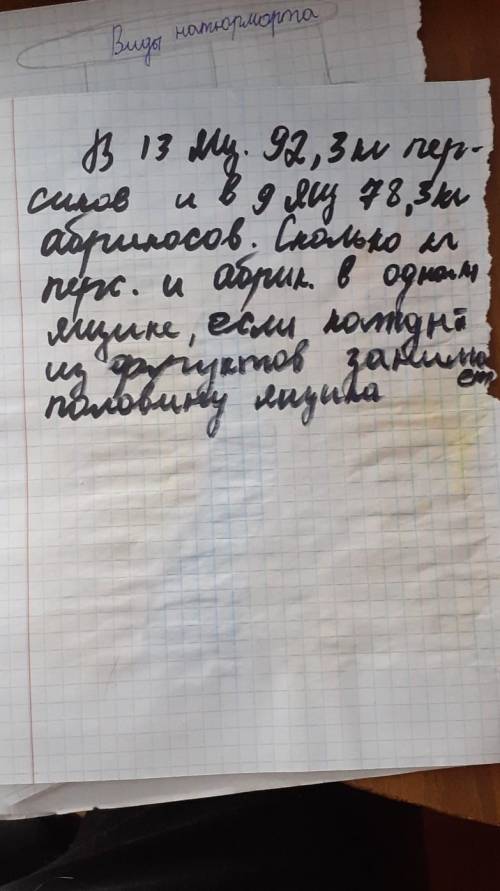 Виды натюрморта
В 13 ящ. 92,3 кг пер-
сиков и в 9 ящ 78,3 кг
абрикосов. Сколько кг
перс. и абрик. в одном
ящике, если каждый
из фруктов занима
ет
половину ящика